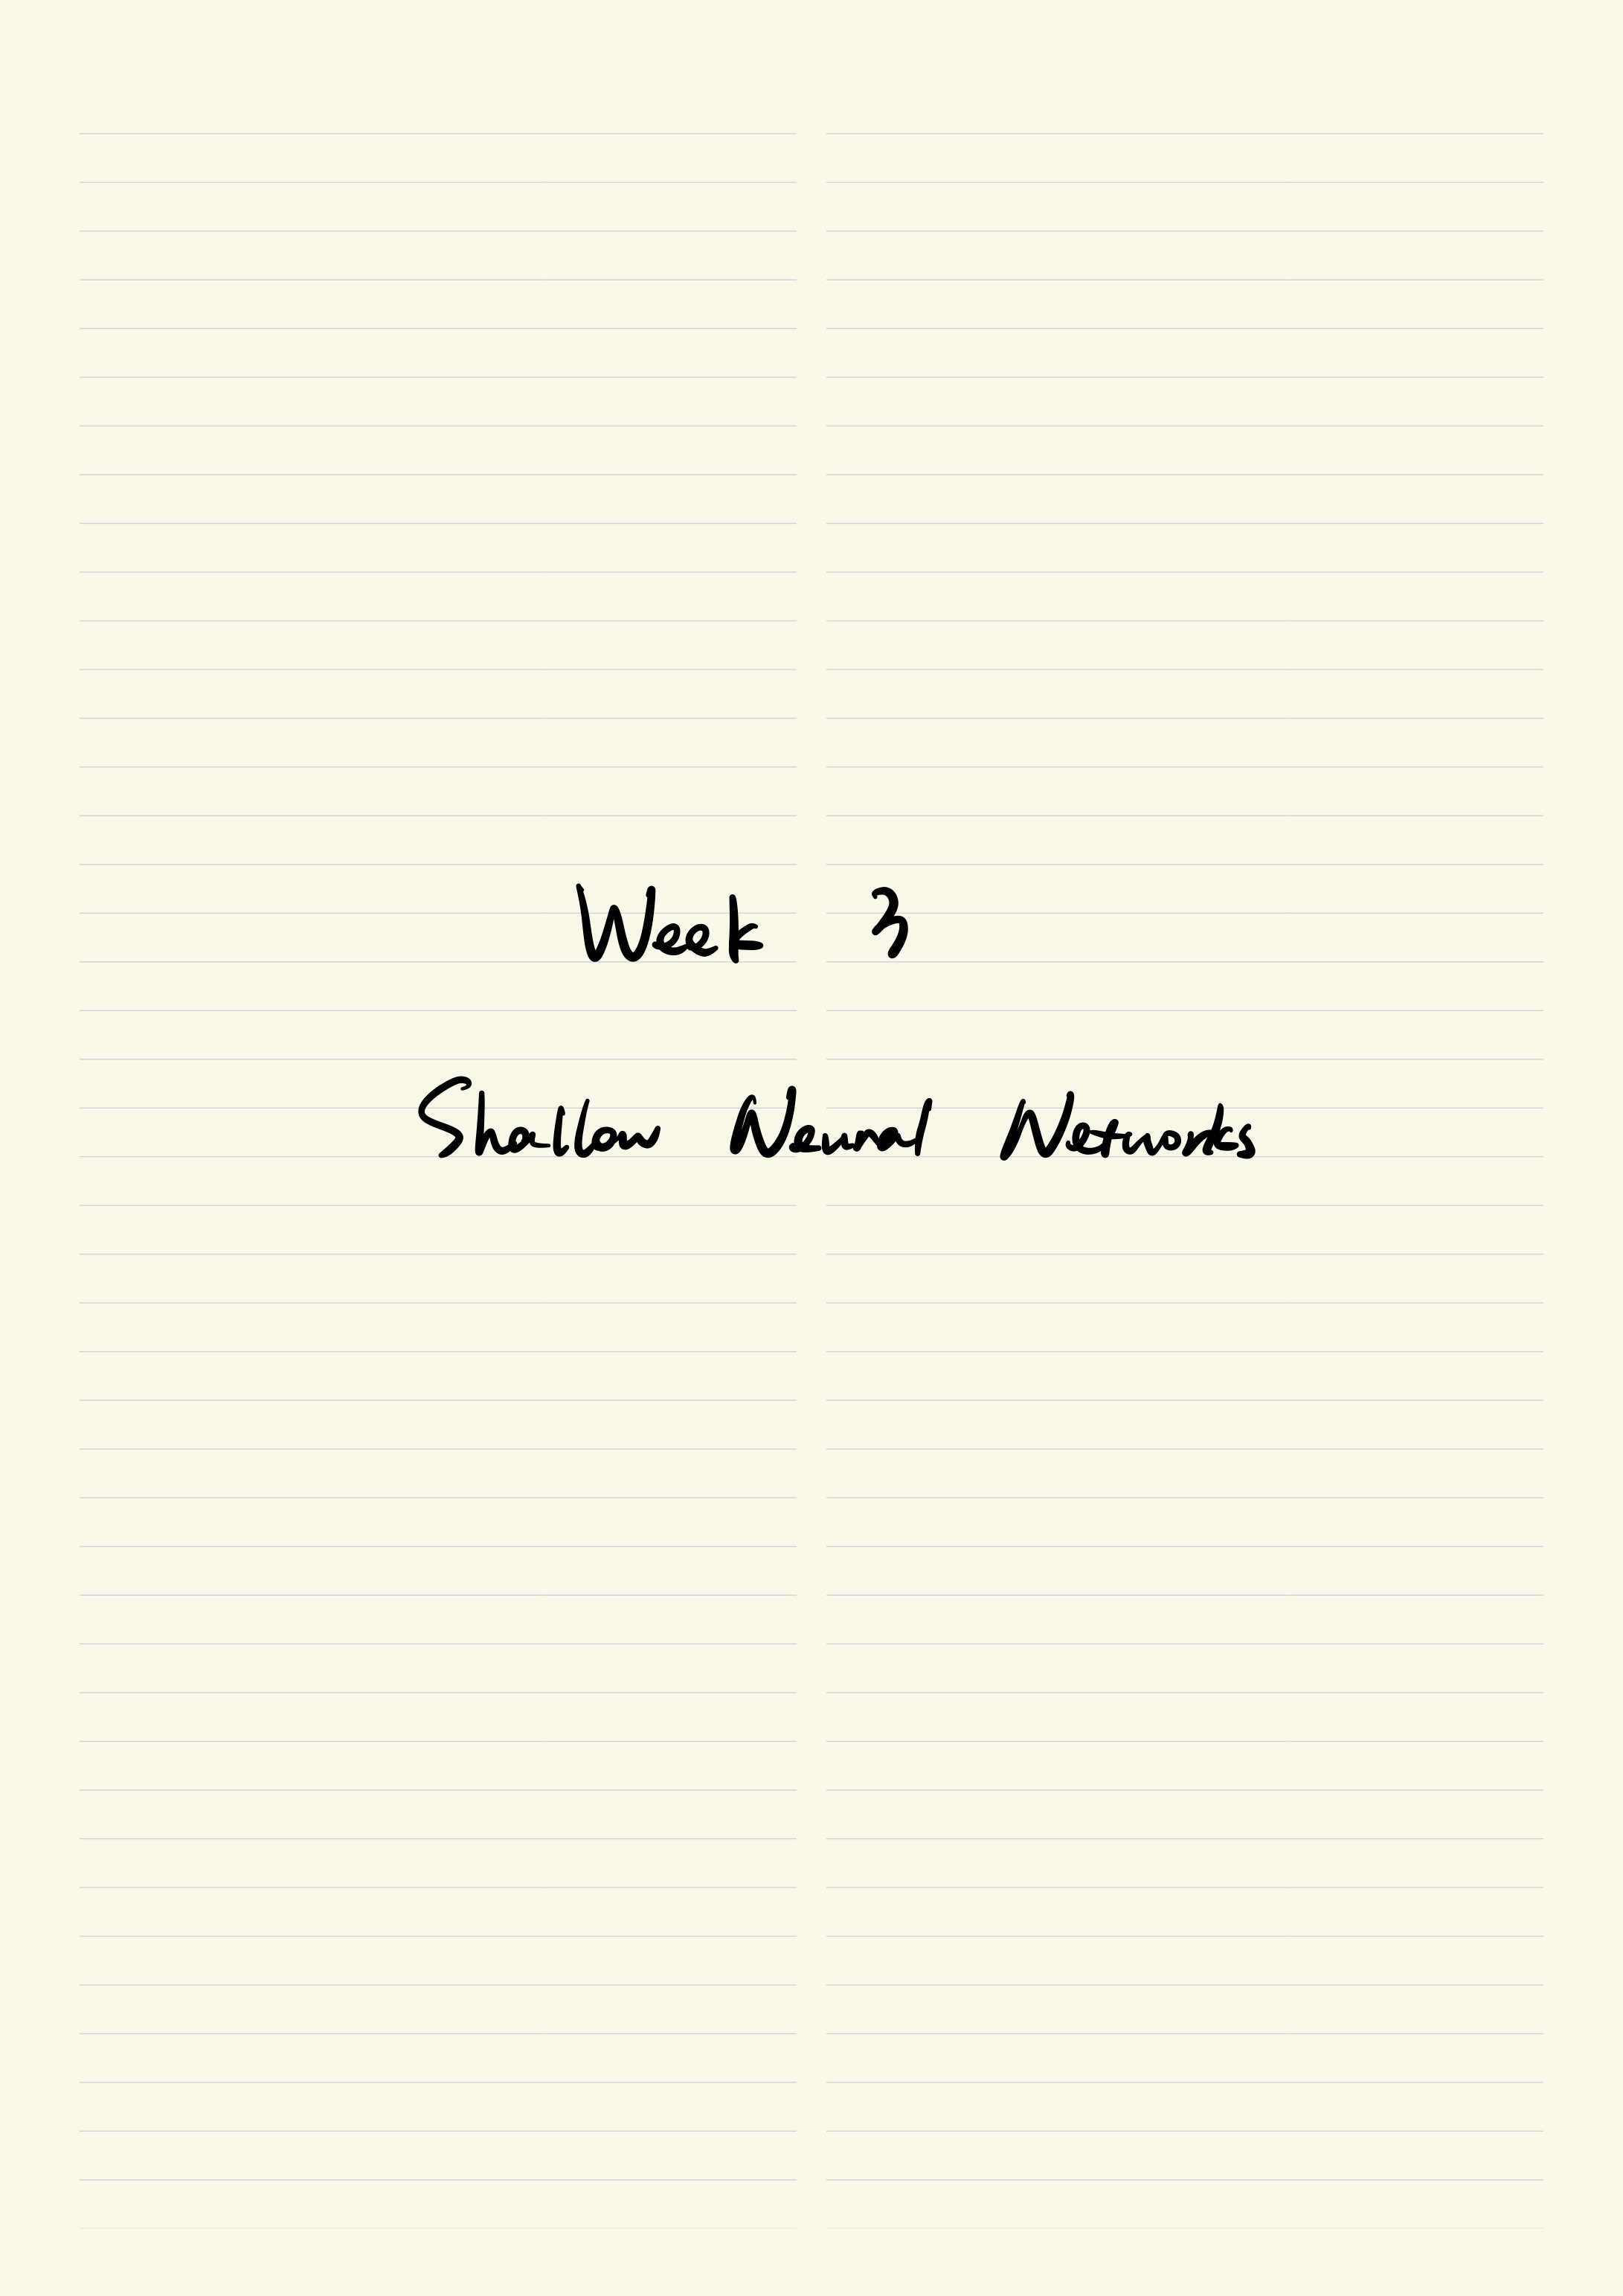 Week 3
Shallow Neural Networks